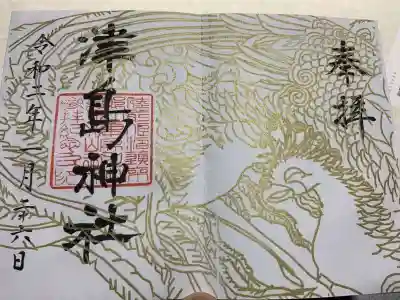 奉拝
津島神社
令和二年一月二十六日